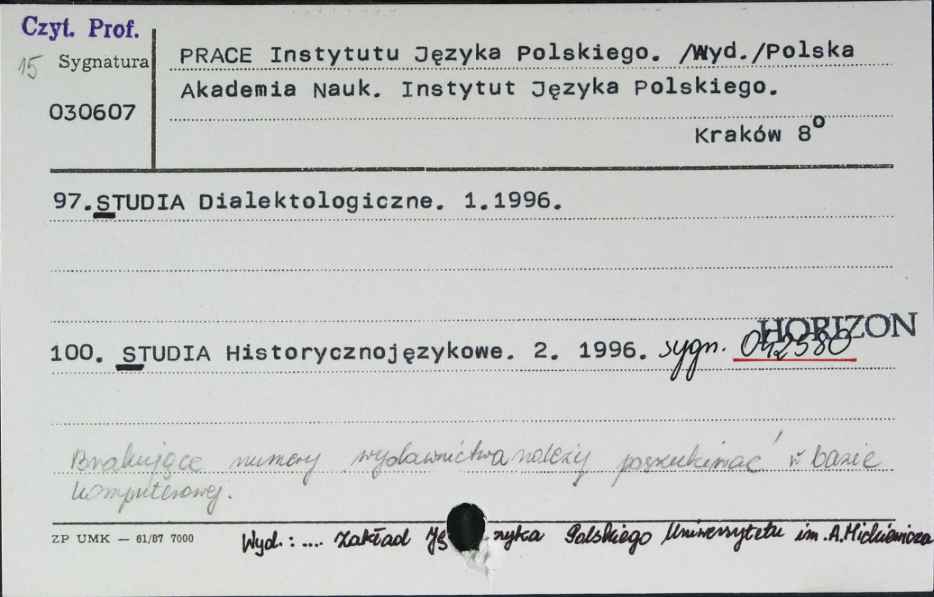 Czyt. Prof.
15 Sygnatura
030607
PRACE Instytutu Języka Polskiego. /Wyd./Polska
Akademia Nauk. Instytut Języka Polskiego.
Kraków 8°
97. STUDIA Dialektologiczne. 1.1996.
HORIZON
100. STUDIA Historycznojęzykowe. 2. 1996. sygn. 042580
Brakujące numery wydawnictwa należy poszukiwać w bazie
komputerowej.
ZP UMK — 61/87 7000
Wyd.: .... Zakład Ję zyka Polskiego Uniwersytetu im. A. Mickiewicza